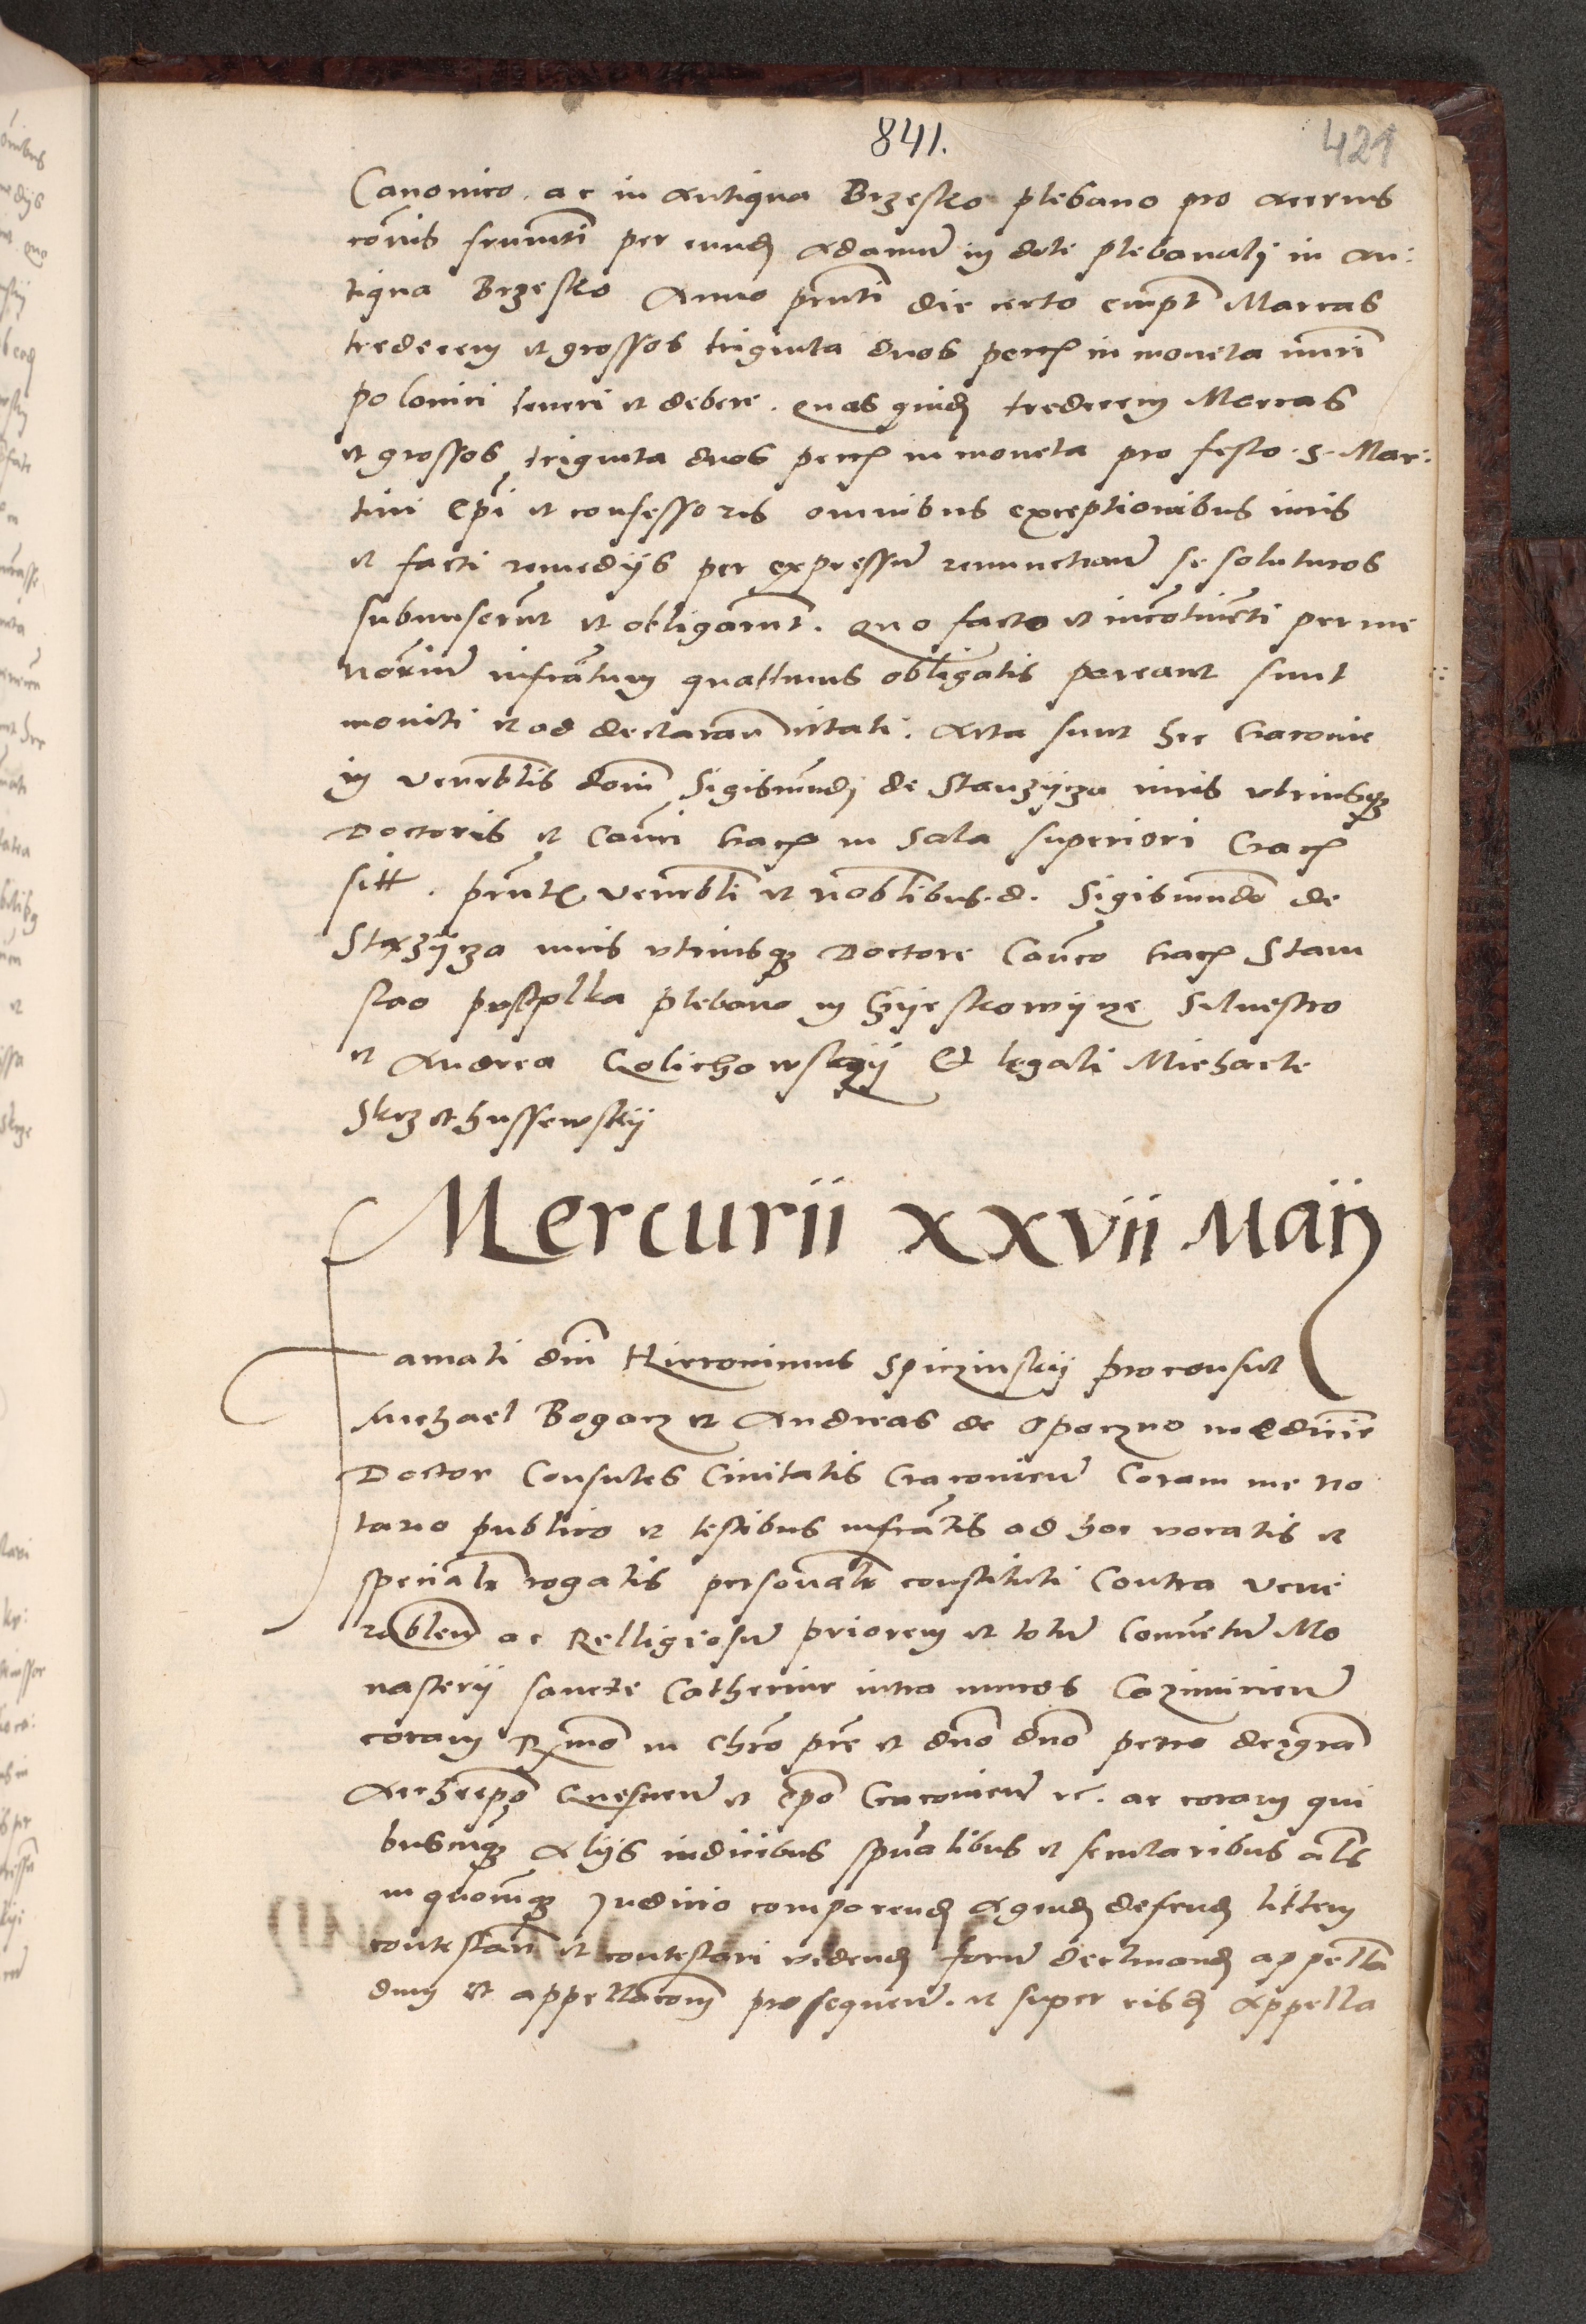 841.
421
Canonico ac in antiqua Brzesko plebano pro acervis
cōnis frumti per eund Adamu in dote plebanalj in An:
tiqua Brzesko Anno pnti die certo empt Marcas
tredecem et grossos triginta duos pecc in moneta nūri
polonici teneri et debere. Quas quid tredecem Marcas
et grossos triginta duos pecc in moneta pro festo S. Mar:
tini Epi et confessoris omnibus exceptionibus iuris
et facti remedijs per expressu renunctiatu se soluturos
submiserūt et obligarūt. Quo facto et incotinēti per me
noriu infratum quattinus obligatis pareant sunt
moniti et ad declaran citati. Acta sunt hec Cracovie
in venerblis dom Sigismūdj de Stanzijcza iuris utriusq
Doctoris et Canci Crac in Sala superiori Crac
sitt. pntx venerbli et noblibus d. Sigismundo de
Stazijcza iuris utriusq Doctore Canco Crac Stani
slao plebano in Silvestro
et Andrea Golichowskij Et legali Michaele
Skrzethussewskij
Mercurii XXVII Maij
Famati dni Hieronimus Spiczinskij proconsul
Michael Bogacz et Andreas de Opoczno medicine
Doctor Consules Civitatis Cracovien Coram me no
tario publico et testibus infratis ad hoc vocatis et
specialr rogatis personalr constituti Contra vene
rablem ac Relligiosu priorem et totu Conuetu Mo
nasterij sancte Catherine intra muros Cazimirien
coram Rmo in chro pre et dno dno petro deigra
Archiepo Gnesnen et epo Cracovien etc. ac coram qui
buscuq Alijs iudicibus spualibus et secularibus als
in quocuq Judicio comparend Agend defend littem
contestan et contestari vidend foru declinand appella
dum et appellacom prosequen et super eisd Appella